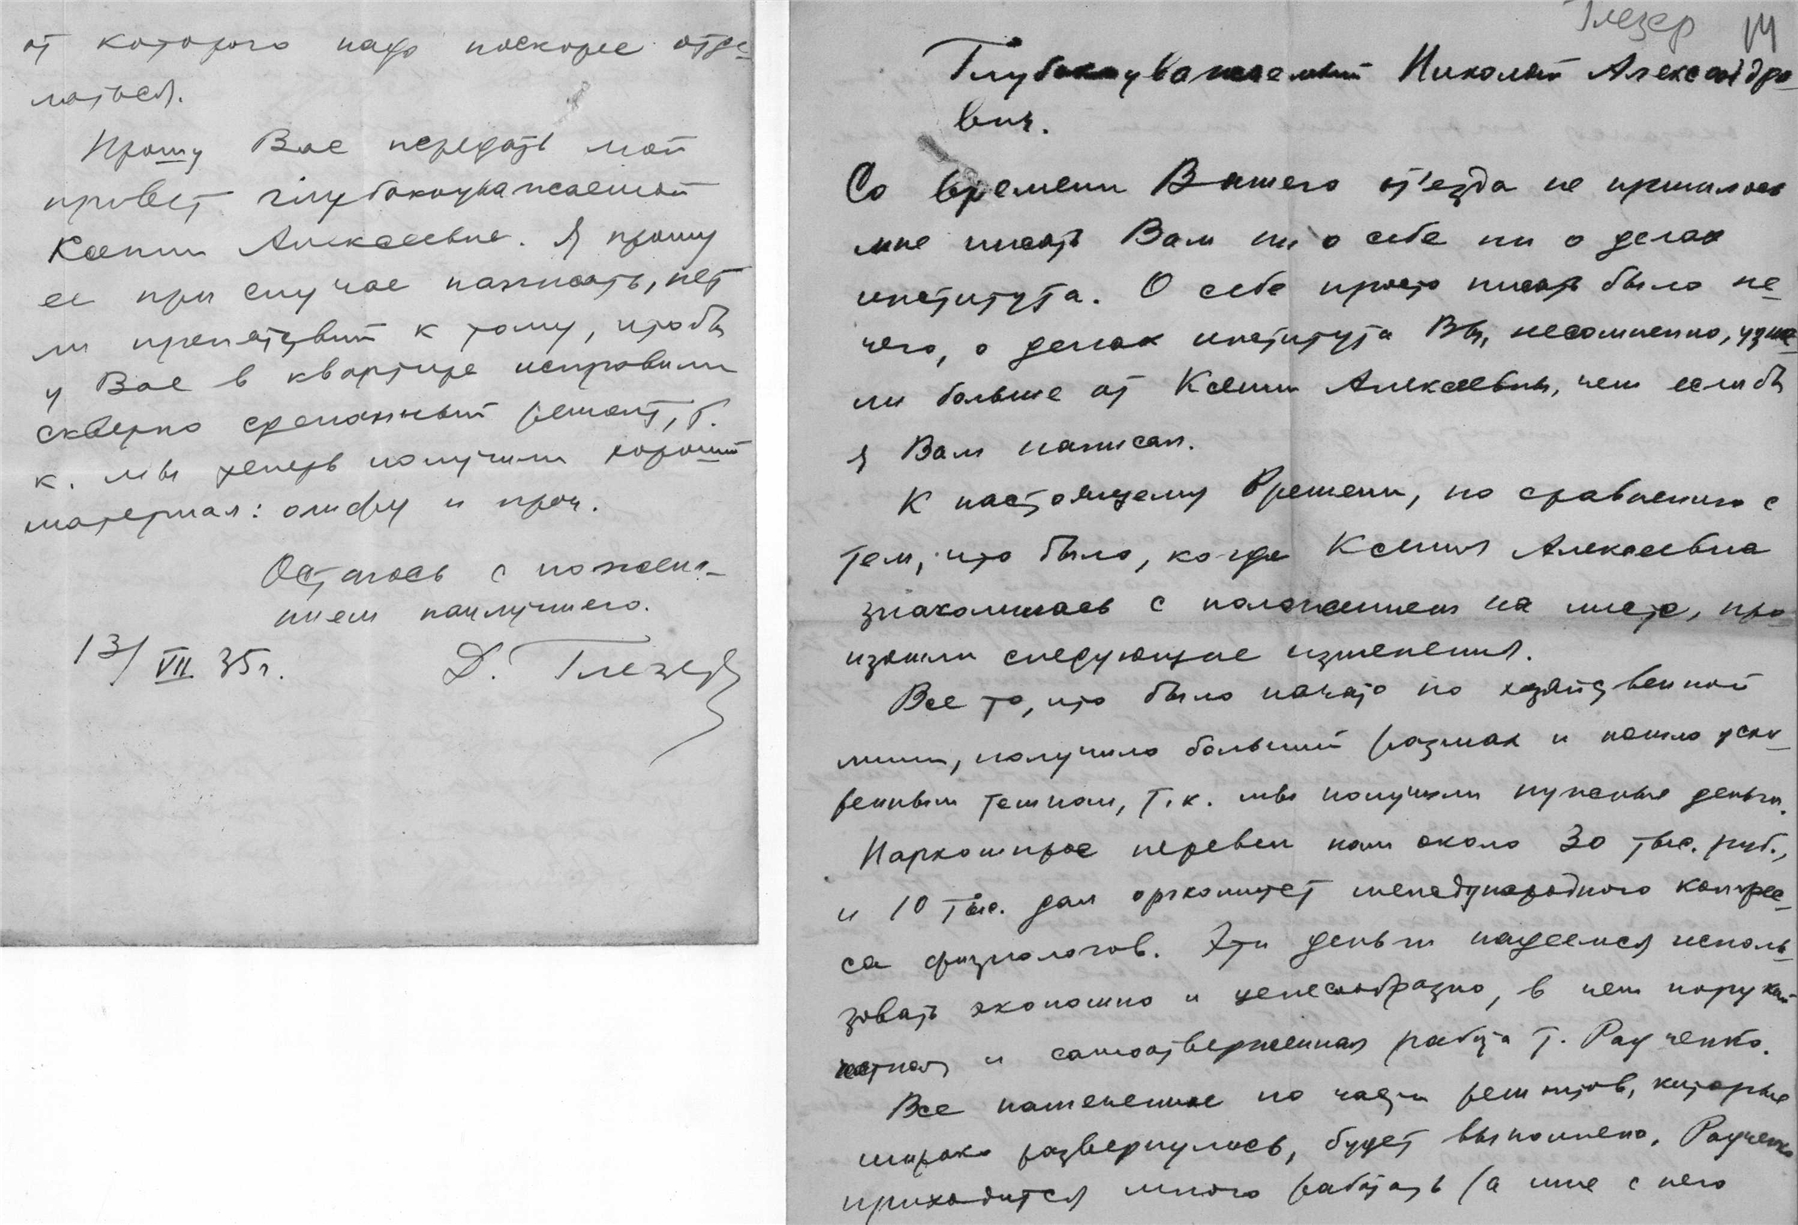 от которого надо поскорее отде-
латься.
Прошу Вас передать мой
привет глубокоуважаемой
Ксении Алексеевне. Я прошу
ее при случае написать, нет
ли препятствий к тому, чтобы
у Вас в квартире исправили
скверно сделанный ремонт, т.
к. мы теперь получили хороший
материал: олифу и проч.
Остаюсь с пожела-
нием наилучшего.
13/VII 35 г. Д. Глезер
Глезер 14
Глубокоуважаемый Николай Александро-
вич.
Со времени Вашего от'езда не пришлось
мне писать Вам ни о себе ни о делах
института. О себе просто писать было не-
чего, о делах института Вы, несомненно, узна-
ли больше от Ксении Алексеевны, чем если бы
я Вам написал.
К настоящему времени, по сравнению с
тем, что было, когда Ксения Алексеевна
знакомилась с положением на месте, про-
изошли следующие изменения.
Все то, что было начато по хозяйственной
линии, получило больший размах и пошло уско-
ренным темпом, т.к. мы получили нужные деньги.
Наркомпрос перевел нам около 30 тыс. руб.,
и 10 тыс. дал оргкомитет международного конгрес-
са физиологов. Эти деньги надеемся исполь-
зовать экономно и целесообразно, в чем порукой
честная и самоотверженная работа т. Раученко.
Все намеченное по части ремонтов, которые
широко развернулись, будет выполнено. Раученко
приходится много работать (а мне с него